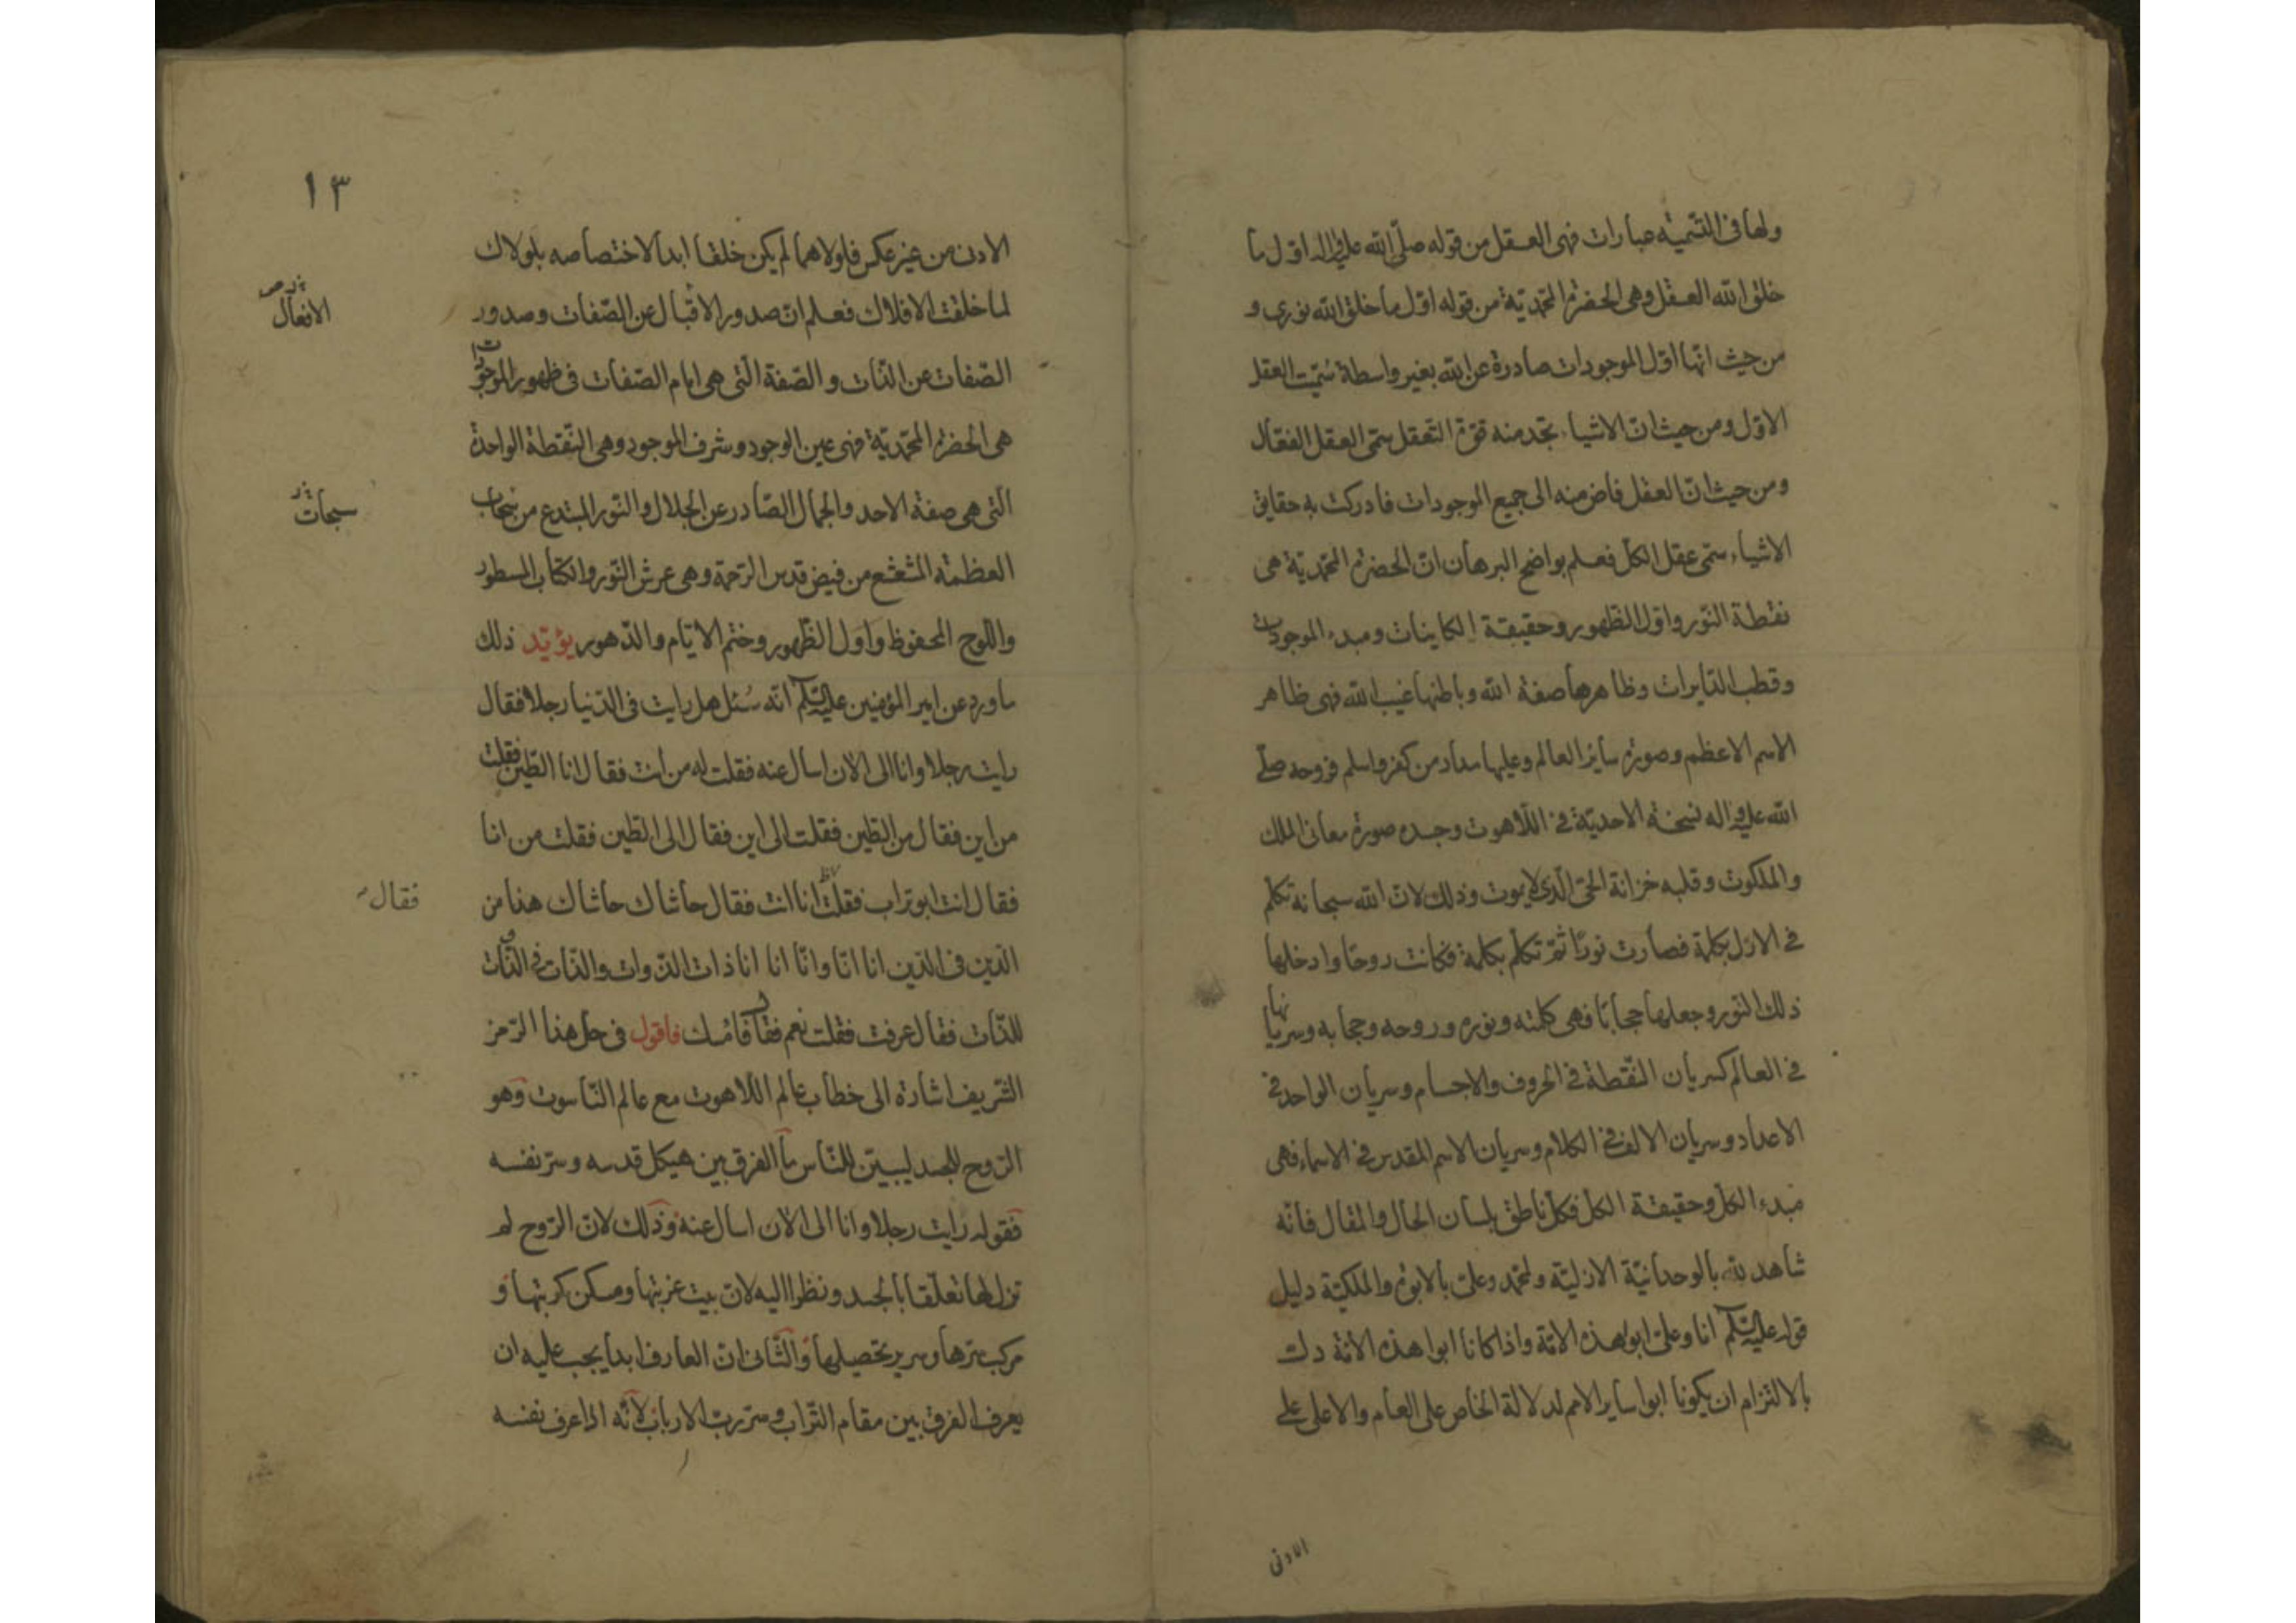 ولها فى التسمية عبارات فهى العقل من قوله صلّى الله عليه واله اوّل ما
خلق الله العقل وهى الحضرة المحمّديّة من قوله اوّل ما خلق الله نورى و
من حيث انّها اوّل الموجودات صادرة عن الله بغير واسطة سُمّيت العقل
الاوّل ومن حيث انّ الاشياء تجد منه قوّة التعقل سمّى العقل الفعّال
ومن حيث انّ العقل فاض منه الى جميع الموجودات فادركت به حقايق
الاشياء سمّى عقل الكلّ فعلم بواضح البرهان انّ الحضرة المحمّديّة هى
نقطة النّور واوّل الظهور وحقيقة الكاينات ومبدء الموجودات
وقطب الدّايرات وظاهرها صفة الله وباطنها غيب الله فهى ظاهر
الاسم الاعظم وصورة ساير العالم وعليها مدار من كفر واسلم فروحه صلّى
الله عليه واله نسخة الاحديّة فى اللّاهوت وجسده صورة معانى الملك
والملكوت وقلبه خزانة الحىّ الّذى لا يموت وذلك لانّ الله سبحانه تكلّم
فى الازل بكلمة فصارت نورًا ثمّ تكلّم بكلمة فكانت روحًا وادخلها
ذلك النّور وجعلها حجابًا فهى كلمته ونوره وروحه وحجابه وسريانها
فى العالم كسريان النّقطة فى الحروف والاجسام وسريان الواحد فى
الاعداد وسريان الالف فى الكلام وسريان الاسم المقدس فى الاسماء فهى
مبدء الكلّ وحقيقة الكل فكلّ ناطق بلسان الحال والمقال فانّه
شاهد لله بالوحدانيّة الازليّة ولمحمّد وعلىّ بالابوّة والملكيّة دليل
قوله عليه السّلم انا وعلىّ ابوا هذه الامّة واذا كانا ابوا هذه الامّة دلّ
بالالتزام ان يكونا ابوا ساير الامم لدلالة الخاص على العام والاعلى على
الادنى
١٣
الادنى من غير عكس فلولاهما لم يكن خلقا ابدا لاختصاصه بلولاك
لما خلقت الافلاك فعلم انّ صدور الاقبال عن الصّفات وصدور
الافعال
الصّفات عن الذّات والصّفة الّتى هى امام الصّفات فى ظهور الموجودات
هى الحضرة المحمّديّة فهى عين الوجود وشرف الموجود وهى النّقطة الواحدة
الّتى هى صفة الاحد والجمال الصّادر عن الجلال والنّور المبتدع من سحاب
سبحات
العظمة المشعشع من فيض قدس الرّحمة وهى عرش النّور والكتاب المسطور
واللّوح المحفوظ واول الظّهور وختم الايّام والدّهور يؤيّد ذلك
ما ورد عن امير المؤمنين عليه السّلم انّه سُئل هل رايت فى الدّنيا رجلا فقال
رايت رجلا وانا الى الان اسال عنه فقلت له من انت فقال انا الطّين فقلت
من اين فقال من الطّين فقلت الى اين فقال الى الطّين فقلت من انا
فقال انت ابو تراب فقلت انا انت فقال حاشاك حاشاك هذا من
فقال
الدّين فى الدّين انا انّا وانّا انا انا ذات الذّوات والذّات فى الذّوات
للذّات فقال عرفت فقلت نعم فقال فامسك فاقول فى حلّ هذا الرّمز
الشّريف اشارة الى خطاب عالم اللّاهوت مع عالم النّاسوت وهو
الرّوح للجسد ليبيّن للنّاس ما الفرق بين هيكل قدسه وسرّ نفسه
فقوله رايت رجلا وانا الى الان اسال عنه وذلك لانّ الرّوح لم
تزل لها تعلّقا بالجسد ونظرا اليه لانّه بيت غربتها ومسكن كربتها و
مركب سرّها وسرير تحصيلها والثّانى انّ العارف ابدا يجب عليه ان
يعرف الفرق بين مقام التّراب وسرّ ربّ الارباب لانّه اذا عرف نفسه